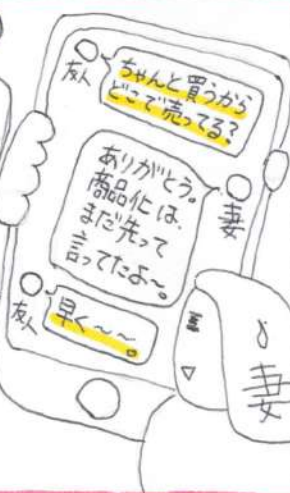 ちゃんと買うから
どこで売ってる?
友人
ありがとう。
商品化は、
まだ先って
言ってたよ〜。
妻
早く〜〜。
友人
妻